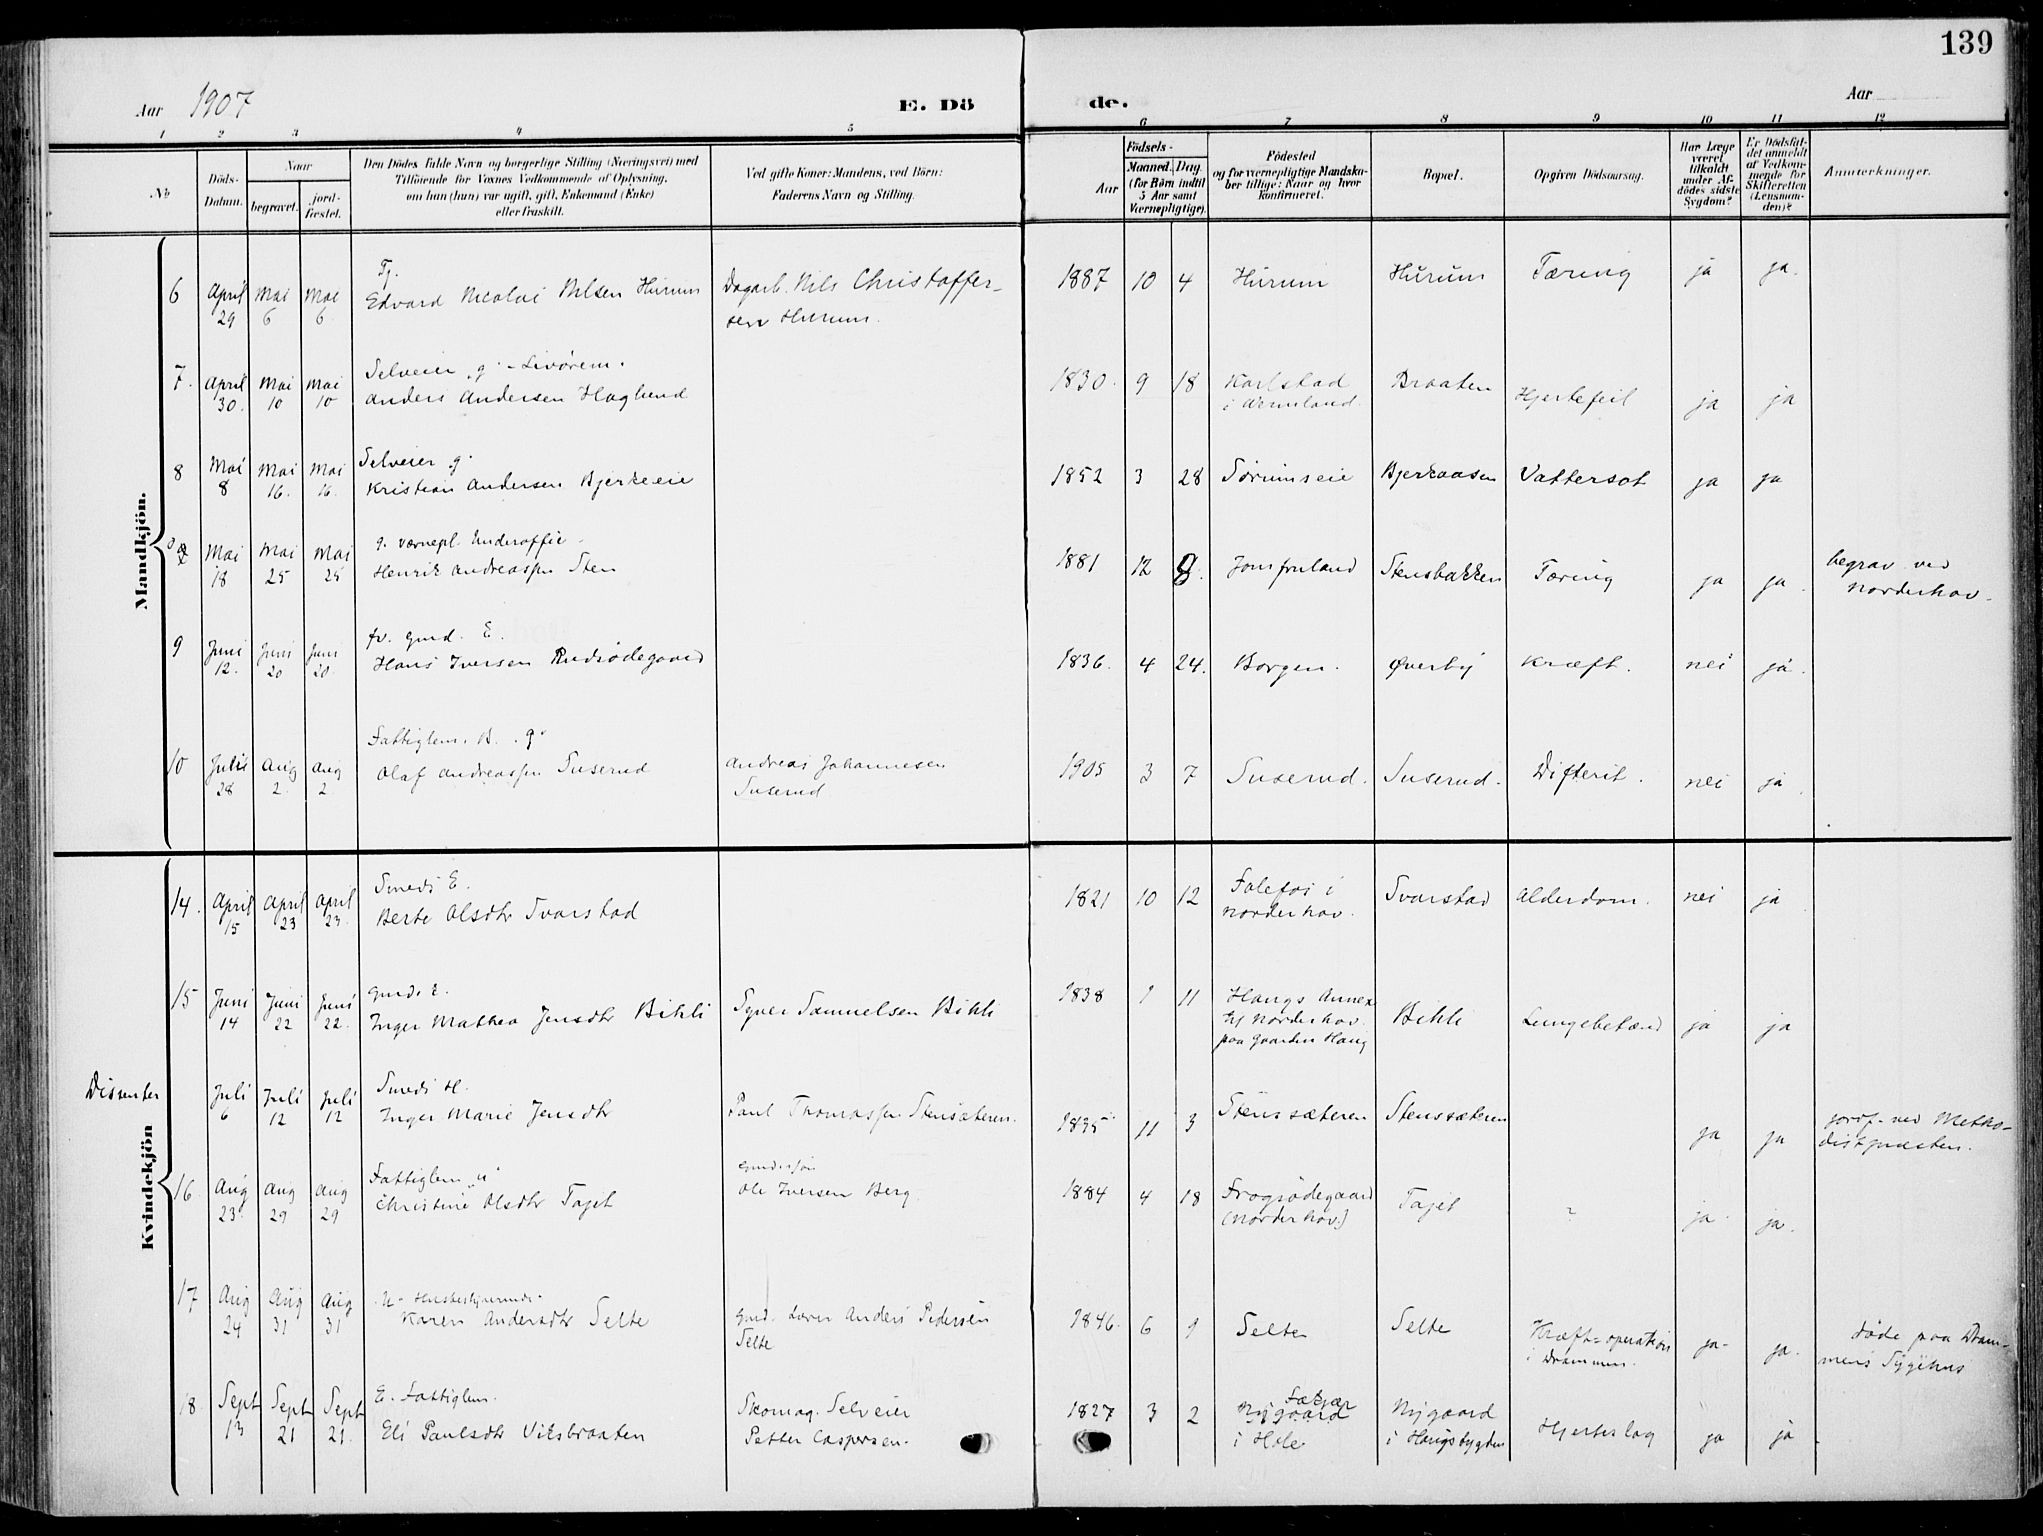 139
Aar 1907
E. Dö
de.
Aar
1 2 3 4 5 6 7 8 9 10 11 12
No
Döds-
Datum.
Naar
begravet.
jord-
fæstet.
Den Dödes fulde Navn og borgerlige Stilling (Næringsvei) med
Tilföiende for Voxnes Vedkommende af Oplysning,
om han (hun) var ugift, gift, Enkemand (Enke)
eller fraskilt.
Ved gifte Koner: Mandens, ved Börn:
Faderens Navn og Stilling.
Födsels-
Aar
Maaned. Dag.
(for Börn indtil
5 Aar samt
Værnepligtige).
Födested
og for værnepligtige Mandska-
ber tillige: Naar og hvor
konfirmeret.
Bopæl.
Opgiven Dödsaarsag.
Har Læge
været
tilkaldt
under Af-
dödes sidste
Sygdom?
Er Dödsfal-
det anmeldt
af Vedkom-
mende for
Skifteretten
(Lensman-
den)?
Anmerkninger.
Mandkjön.
Tj.
6 April 29 Mai 6 Mai 6 Edvard Nicolai Nilsen Hurum Dagarb. Nils Christoffer-
sen Hurum.
1887 10 4 Hurum Hurum Tæring ja ja.
Selveier g. - Livørem.
7. April 30. Mai 10 Mai 10 Anders Andersen Haglund
1830. 9 18 Karlstad
i Vermland.
Braaten Hjertefeil ja ja
Selveier g.
8 Mai 8 Mai 16. Mai 16. Kristian Andersen Bjerkeeie
1852 3 28 Sørumseie Bjerkaasen Vattersot ja ja
g. værnepl. Underoffic.
Mai 18 Mai 25 Mai 25 Henrik Andreassen Sten
1881 12 9. Jomfruland Stensbakken Tæring ja ja.
begrav. ved
Norderhov.
fv. gmd. E.
9 Juni 12. Juni 20 Juni 20. Hans Iversen Rudsødegaard
1836. 4 24. Borgen. Øverby Kræft. nei ja.
Fattiglem. B. g.
10 Juli 28 Aug 2. Aug 2 Olaf Andreassen Suserud Andreas Johannesen
Suserud
1905 3 7 Suserud. Suserud. Difterit. nei ja.
Kvindekjön
Smeds E.
14. April 15 April 23 April 23. Berte Olsdtr Svarstad
1821 10 12 Falefos i
Norderhov.
Svarstad Alderdom. nei ja
Gmds E.
15 Juni 14 Juni 22 Juni 22. Inger Mathea Jensdtr Bihli Syver Samuelsen Bihli
1838 1 11 Haugs Annex
til Norderhov.
paa Gaarden Haug
Bihli Lungebetænd ja ja
Dissenter
Smeds H.
Juli 6 Juli 12 Juli 12 Inger Marie Jensdtr Paul Thomassen Stensæteren.
1835 11 3 Stenssæteren Stenssæteren ja ja
jordf. ved Metho-
distpræsten.
Fattiglem u
16. Aug 23. Aug 29 Aug 29 Christine Olsdtr Taget
Ole Iversen Berg
1884 4 18 Frogsødegaard
(Norderhov.)
Taget ? ja. ja.
U. Husbestyrerinde.
17 Aug 24 Aug 31 Aug 31 Karen Andersdtr Selte Gmd. Lærer Anders Pedersen
Selte
1846. 6 1 Selte Selte Kræft-operation
i Drammen.
ja. ja.
døde paa Dram-
mens Sygehus
E. Fattiglem.
18. Sept 13 Sept 21 Sept 21. Eli Paulsdtr Viksbraaten Skomag. Selveier
Petter Caspersen.
1827 3 2 Nygaard
i Hole
Nygaard
i Haugsbygden
Hjerteslag ja ja